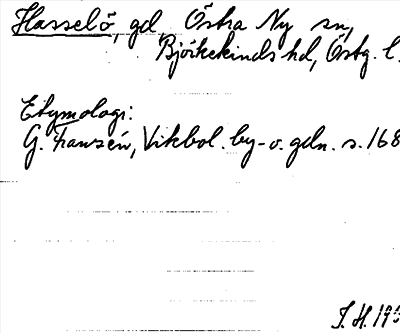 Hasselö, gd, Östra Ny sn,
Björkekinds hd, Östg. l.
Etymologi:
G. Franzén, Vikbol. by- o. gdn. s. 168
J. H. 193